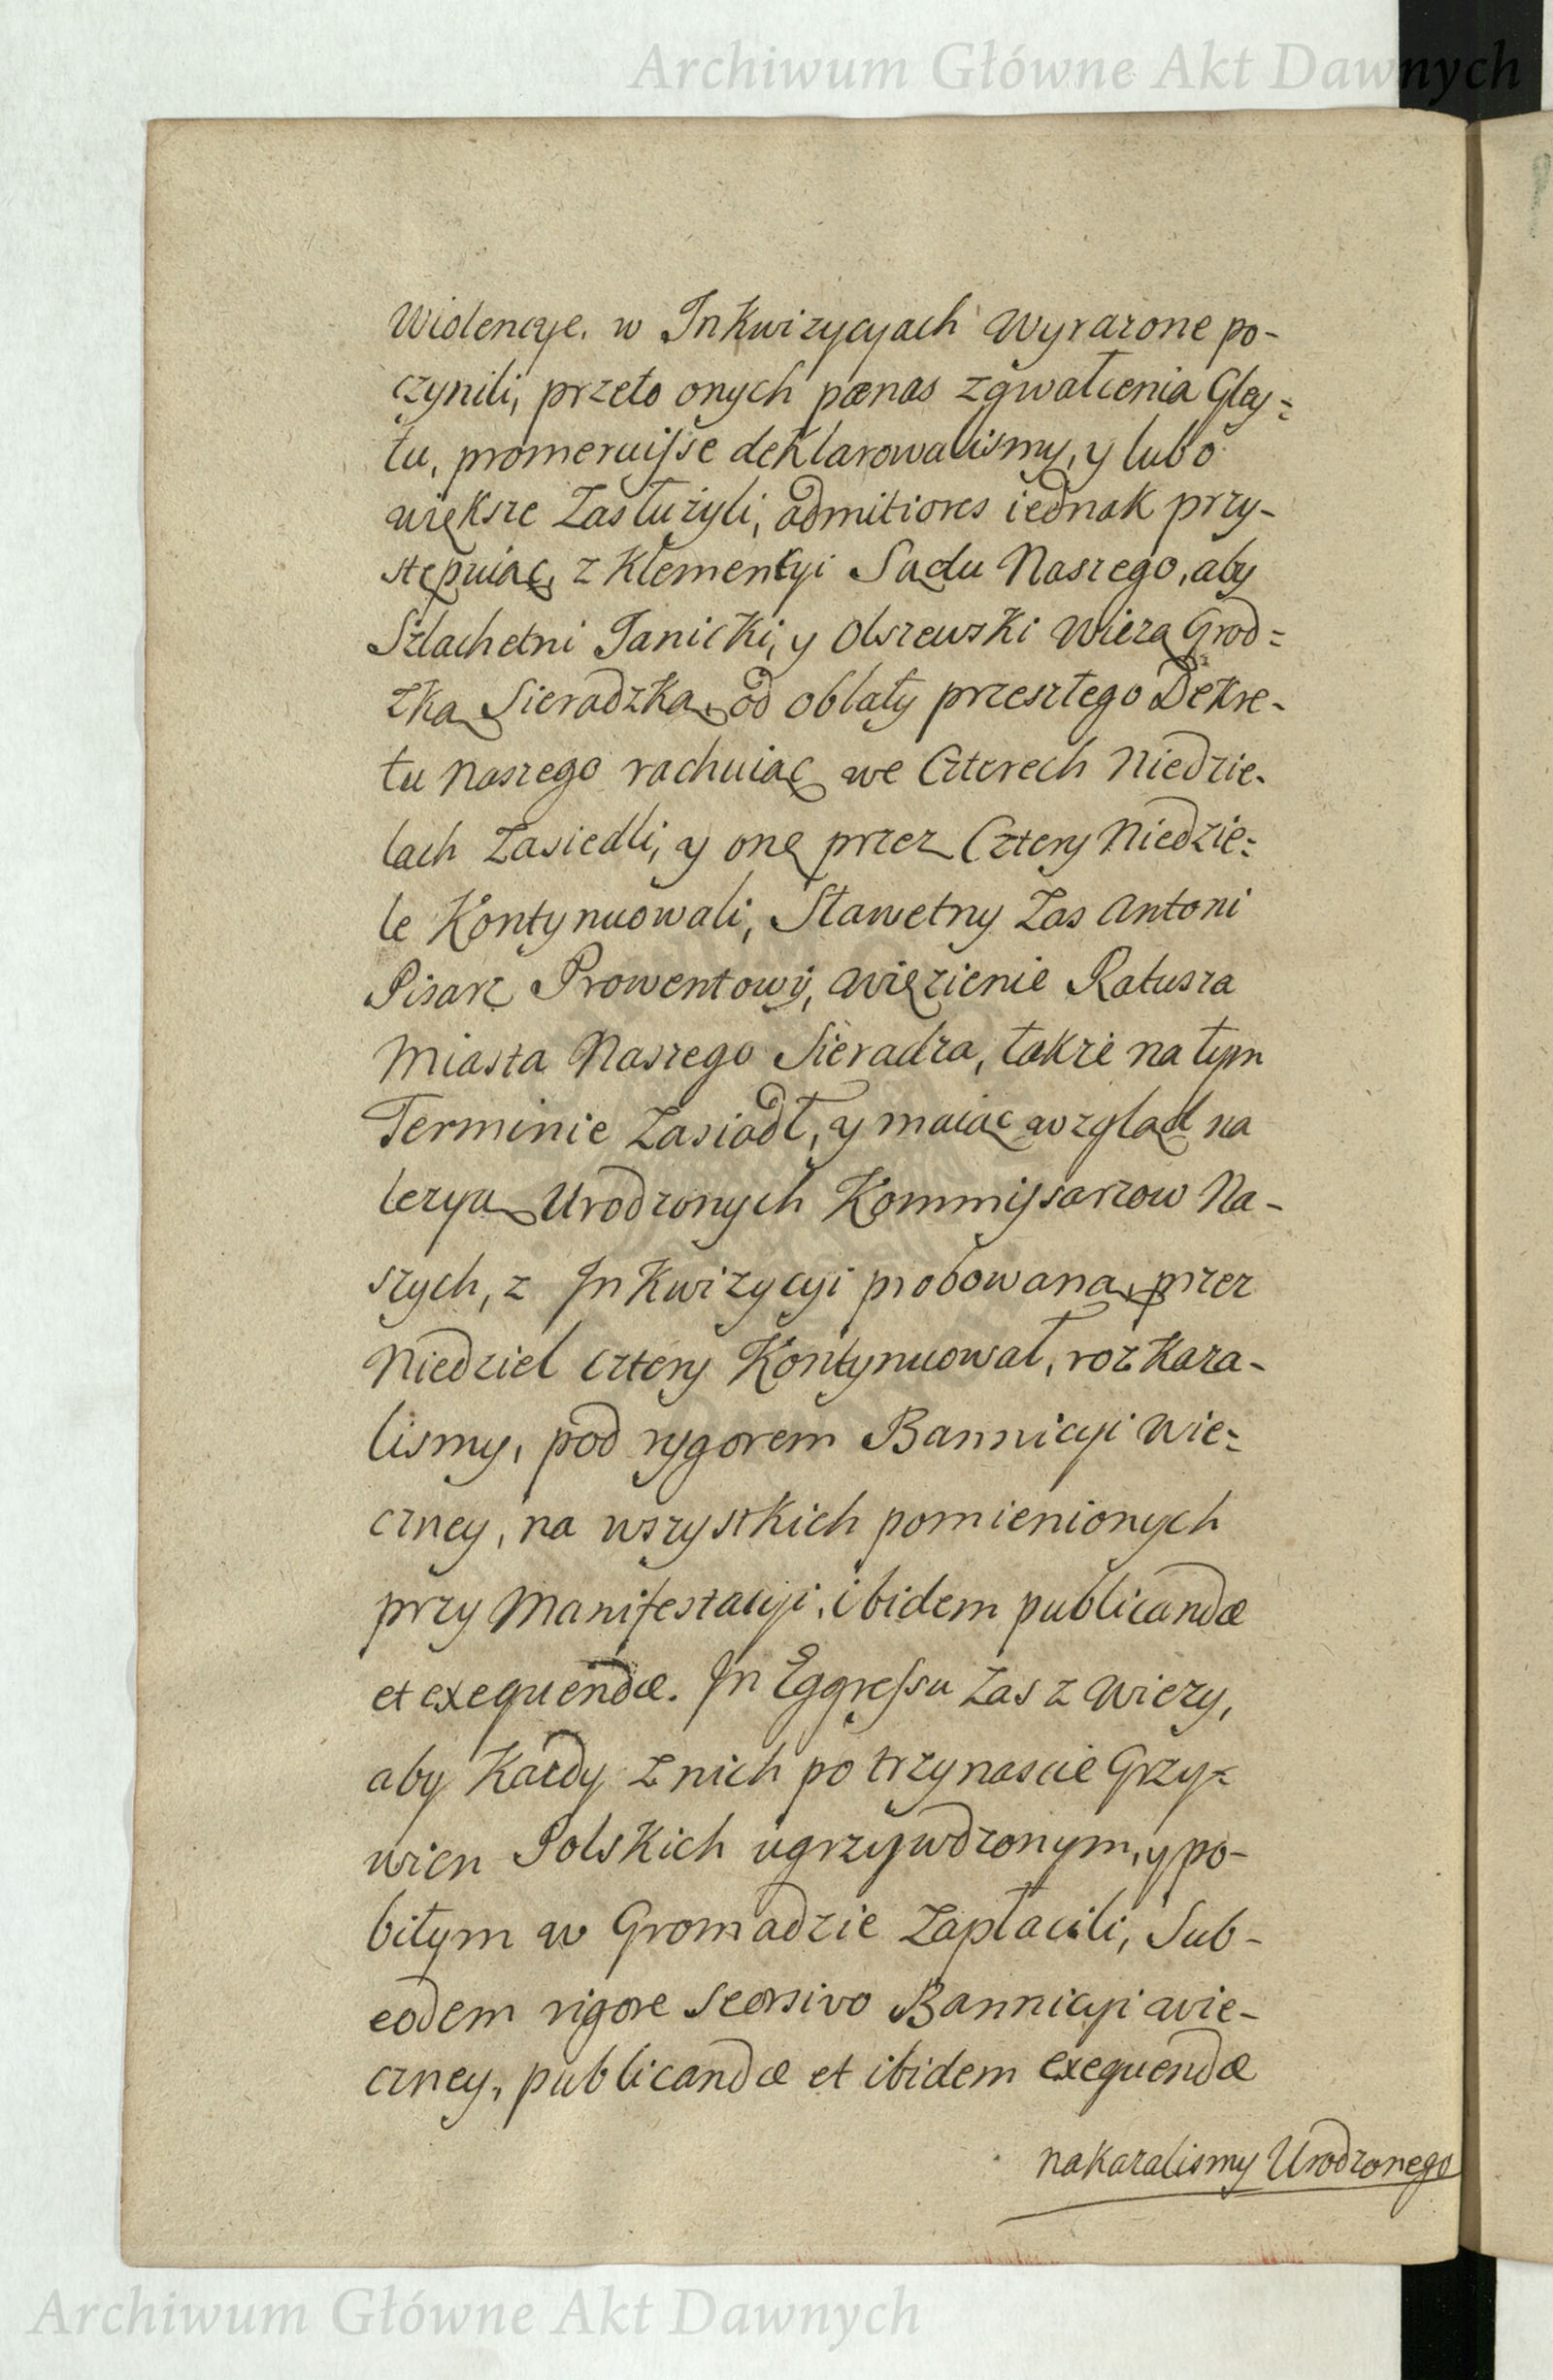 Archiwum Główne Akt Dawnych
Wiolencye. w Inkwizycyach Wyrazone po-
czynili, przeto onych pœnas zgwałcenia Gley=
tu, promeruisse deklarowalismy, y lubo
większe Zasłużyli, ad mitiores iednak przy-
stępuiąc, z Klemencyi Sądu Naszego, aby
Szlachetni Janicki, y Olszewski Wieżą Grod=
zką Sieradzką, od oblaty przeszłego Dekre-
tu Naszego rachuiąc we Czterech Niedzie-
lach Zasiedli, y onę przez Cztery Niedzie=
le Kontynuowali, Sławetny Zas Antoni
Pisarz Prowentowy, więzienie Ratusza
Miasta Naszego Sieradza, także na tym
Terminie Zasiadł, y maiąc wzgląd na
lezyą Urodzonych Kommissarzow Na-
szych, z Inkwizycyi probowaną, przez
Niedziel cztery Kontynuował, rozkaza-
lismy, pod rygorem Bannicyi Wie=
czney, na wszystkich pomienionych
przy Manifestacyi, ibidem publicandæ
et exequendæ. In Eggressu Zas z Wiezy,
aby Kazdy z nich po trzynascie Grzy=
wien Polskich ugrzywdzonym, y po-
bitym w Gromadzie Zapłacili, Sub-
eodem rigore Seorsivo Bannicyi wie-
czney, publicandæ et ibidem exequendæ
nakazalismy Urodzonego
Archiwum Główne Akt Dawnych